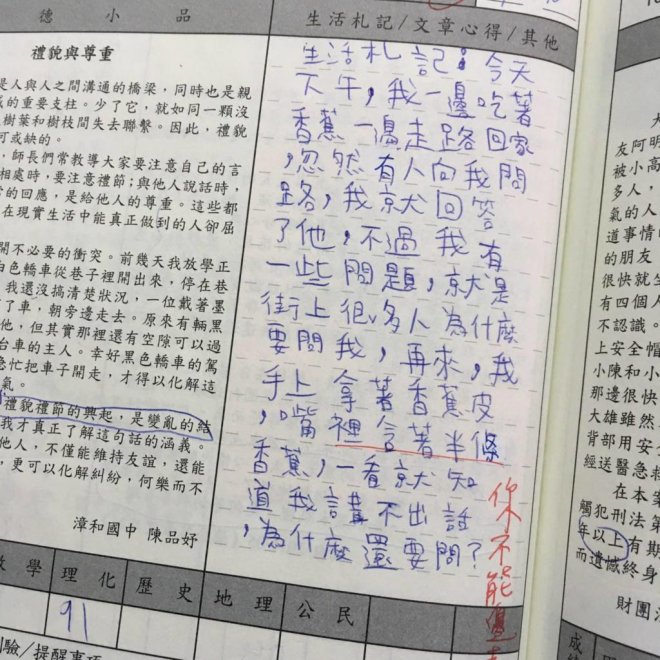 德 小 品
禮貌與尊重
是人與人之間溝通的橋梁，同時也是親
的重要支柱。少了它，就如同一顆沒
樹葉和樹枝間失去聯繫。因此，禮貌
可或缺的。
，師長們常教導大家要注意自己的言
相處時，要注意禮節；與他人說話時，
的回應，是給他人的尊重。這些都
在現實生活中能真正做到的人卻屈
開不必要的衝突。前幾天我放學正
白色轎車從巷子裡開出來，停在巷
我還沒搞清楚狀況，一位戴著墨
了車，朝旁邊走去。原來有輛黑
他，但其實那裡還有空隙可以過
台車的主人。幸好黑色轎車的駕
急忙把車子開走，才得以化解這
氣。
禮貌禮節的興起，是變亂的結
我才真正了解這句話的涵義。
他人，不僅能維持友誼，還能
，更可以化解糾紛，何樂而不
漳和國中 陳品妤
生活札記/文章心得/其他
生活札記：今天
下午，我一邊吃著
香蕉一邊走路回家
，忽然有人向我問
路，我就回答
了他，不過我有
一些問題，就是
街上很多人為什麼
要問我，再來，我
手上拿著香蕉皮
，嘴裡含著半條
香蕉，一看就知
道我講不出話
，為什麼還要問？
你不能邊走
數 學 理 化 歷 史 地 理 公 民
91
測驗/提醒事項
大
友阿明
被小高
多人，
氣的人
道事情
的朋友
很快就生
有四個人
不認識。
上安全帽
小陳和小
那邊很快
大雄雖然
背部用安
經送醫急救
在本案
觸犯刑法第
年以上有期
而遺憾終身
財團法
成